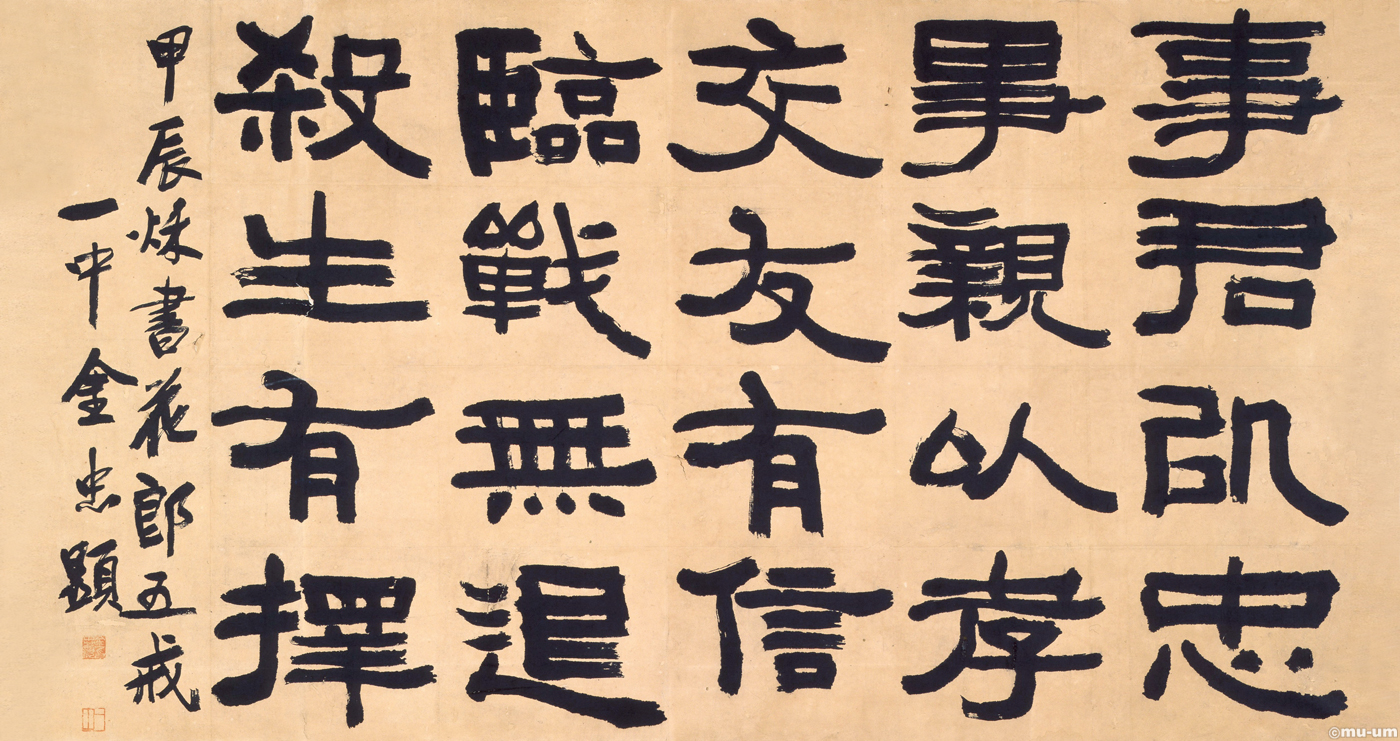 事君以忠
事親以孝
交友有信
臨戰無退
殺生有擇
甲辰秌書花郎五戒
一中金忠顯
©mu-um